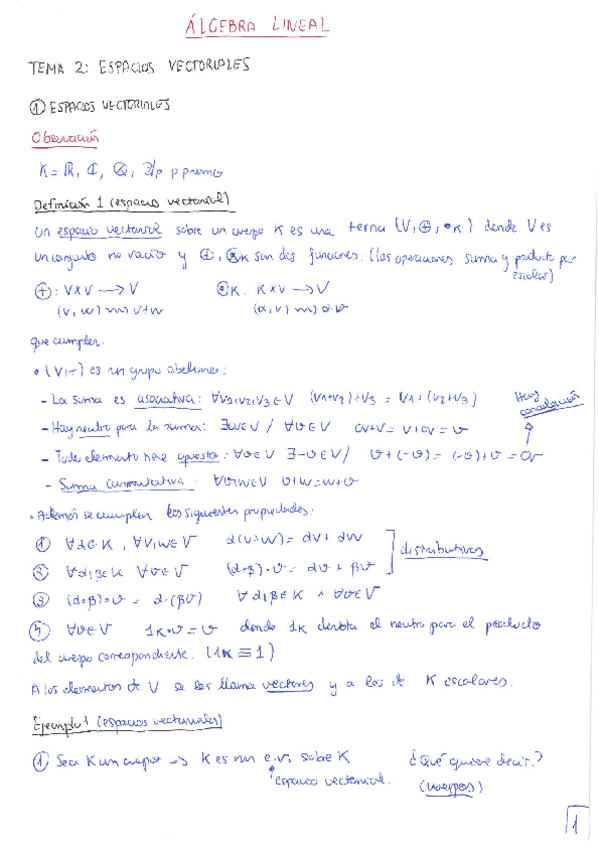 ÁLGEBRA LINEAL
TEMA 2: ESPACIOS VECTORIALES
① ESPACIOS VECTORIALES
Observación
K = ℝ, ℂ, ℚ, ℤ/p p primo
Definición 1 (espacio vectorial)
Un espacio vectorial sobre un cuerpo K es una terna (V, ⊕, •K) donde V es
un conjunto no vacío y ⊕, ⊗K son dos funciones. (las operaciones suma y producto por
escalar)
⊕: V×V → V ⊙K: K×V → V
(v, w) ⇝ v+w (α, v) ⇝ α·v
que cumplen:
• (V, +) es un grupo abeliano:
- La suma es asociativa: ∀v1, v2, v3 ∈ V (v1+v2)+v3 = v1+(v2+v3)
Hay
cancelación
- Hay neutro para la suma: ∃0v∈V / ∀v∈V 0v+v = v+0v = v
- Todo elemento tiene opuesto: ∀v∈V ∃-v∈V / v+(-v) = (-v)+v = 0v
- Suma conmutativa: ∀v,w∈V v+w=w+v
• Además se cumplen las siguientes propiedades:
① ∀α∈K, ∀v,w∈V α(v+w) = αv+αw
② ∀α,β∈K ∀v∈V (α+β)·v = αv+βv
distributivas
③ (α·β)·v = α·(βv) ∀α,β∈K ∧ ∀v∈V
④ ∀v∈V 1K·v=v donde 1K denota el neutro para el producto
del cuerpo correspondiente. (1K ≡ 1)
A los elementos de V se les llama vectores y a los de K escalares.
Ejemplo 1 (espacios vectoriales)
① Sea K un cuerpo → K es un e.v. sobre K ¿Qué quiere decir?
espacio vectorial. (cuerpos)
1